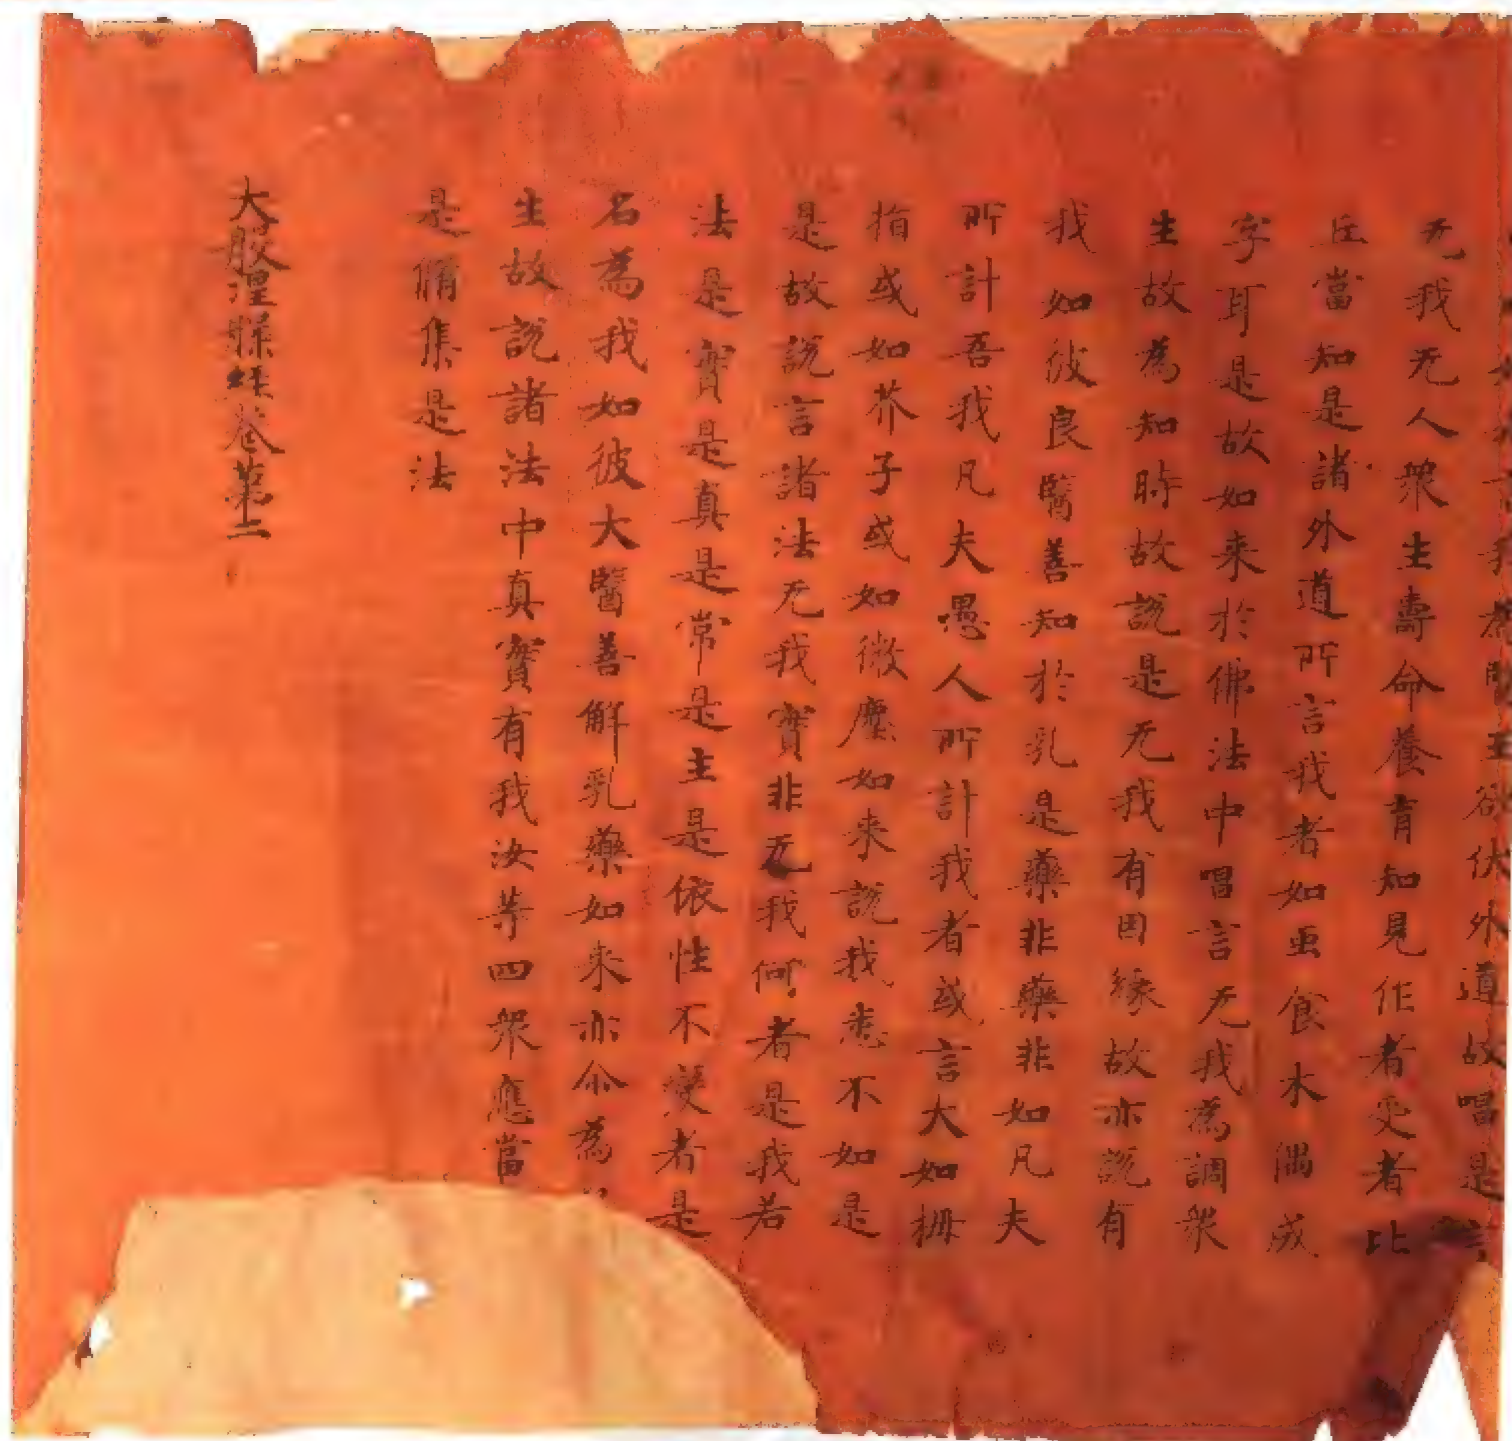 我為醫王欲伏外道故唱是言
无我无人衆生壽命養育知見作者受者比
丘當知是諸外道所言我者如虫食木偶成
字耳是故如来於佛法中唱言无我為調衆
生故為知時故說是无我有因緣故亦說有
我如彼良醫善知於乳是藥非藥非如凡夫
所計吾我凡夫愚人所計我者或言大如拇
指或如芥子或如微塵如来說我悉不如是
是故說言諸法无我實非无我何者是我若
法是實是真是常是主是依性不變者是
名為我如彼大醫善解乳藥如来亦尒為
生故說諸法中真實有我汝等四衆應當
是脩集是法
大般涅槃經卷第二